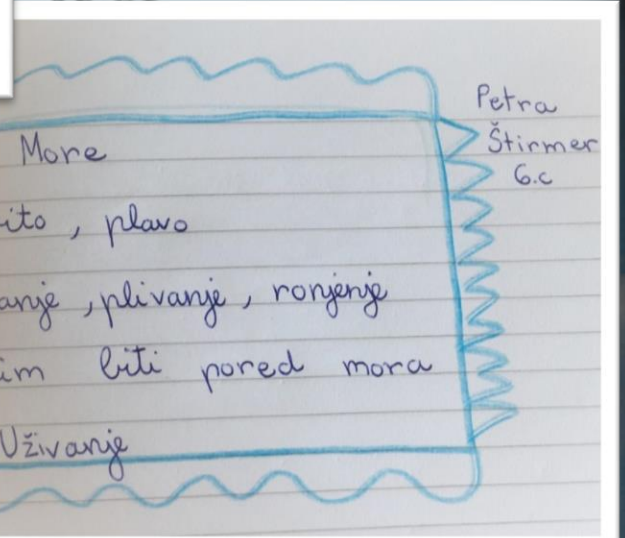 Petra
Štirmer
6.c
More
ito, plavo
anje, plivanje, ronjenje
im biti pored mora
Uživanje